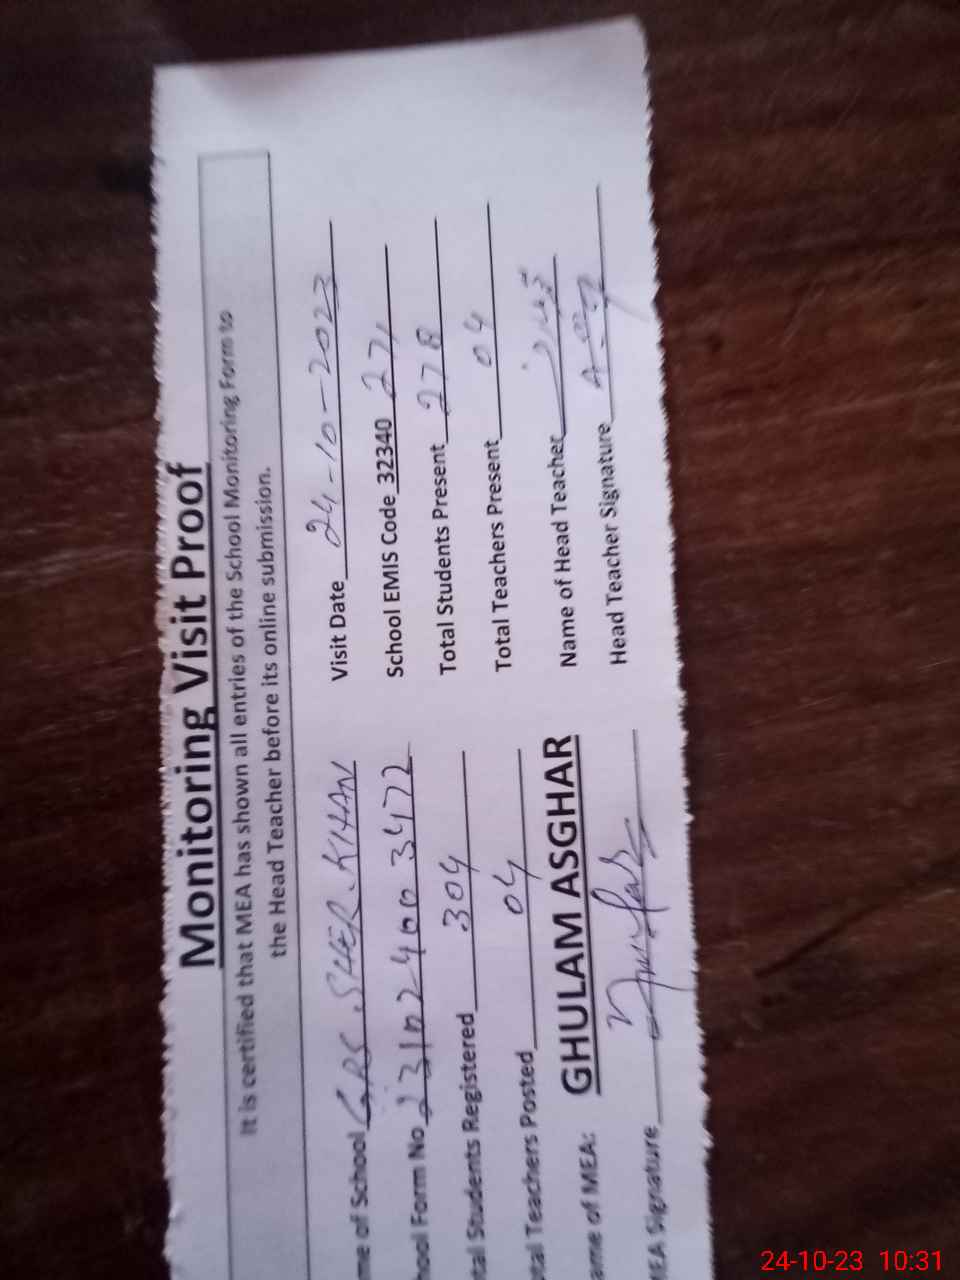 Monitoring Visit Proof
It is certified that MEA has shown all entries of the School Monitoring Form to
the Head Teacher before its online submission.
me of School GPS SHER KHAN Visit Date 24-10-2023
hool Form No 231024003472 School EMIS Code 32340 271
tal Students Registered 304 Total Students Present 278
otal Teachers Posted 04 Total Teachers Present 04
ame of MEA: GHULAM ASGHAR Name of Head Teacher
MEA Signature Head Teacher Signature
24-10-23 10:31